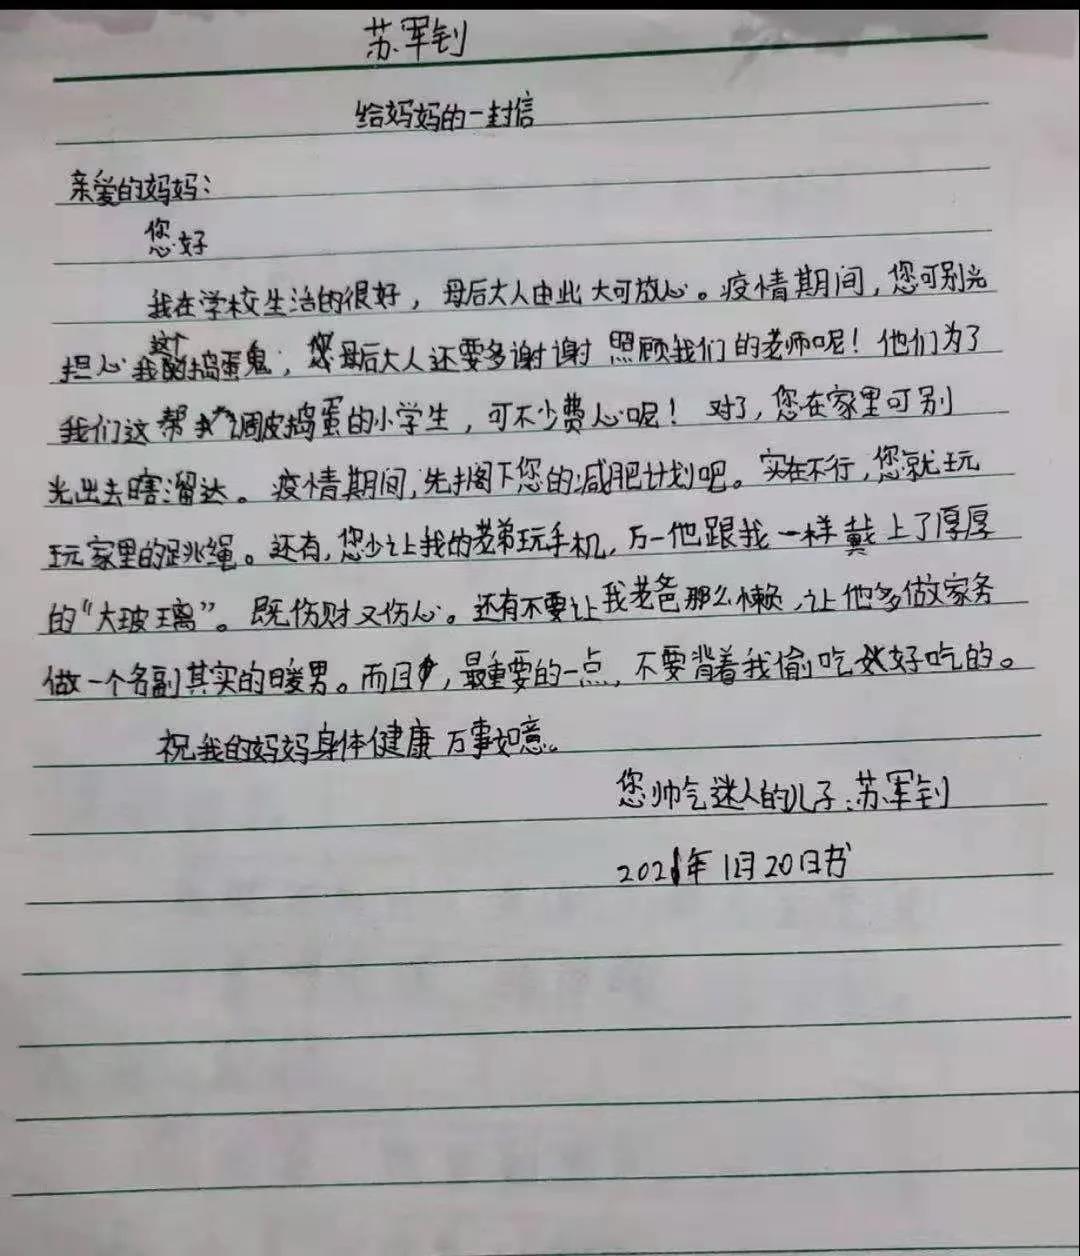 苏军钊
给妈妈的一封信
亲爱的妈妈：
您好
我在学校生活的很好，母后大人由此大可放心。疫情期间，您可别光
担心我这个捣蛋鬼，您母后大人还要多谢谢照顾我们的老师呢！他们为了
我们这帮调皮捣蛋的小学生，可不少费心呢！对了，您在家里可别
光出去瞎溜达。疫情期间，先搁下您的减肥计划吧。实在不行，您就玩
玩家里的跳绳。还有，您少让我的老弟玩手机，万一他跟我一样戴上了厚厚
的“大玻璃”。既伤财又伤心。还有不要让我老爸那么懒，让他多做家务
做一个名副其实的暖男。而且，最重要的一点，不要背着我偷吃好吃的。
祝我的妈妈身体健康 万事如意。
您帅气迷人的儿子：苏军钊
2021年1月20日书